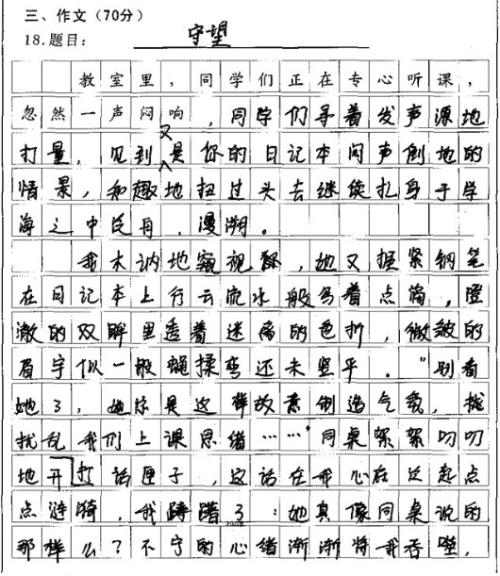 三、作文（70分）
18.题目： 守望
教室里，同学们正在专心听课，
忽然一声闷响，同学们寻着发声源地
打量，见到又是你的日记本闷声倒地的
情景，知趣地扭过头去继续扎身于学
海之中泛舟、漫溯。
我木讷地窥视，她又握紧钢笔
在日记本上行云流水般写着点滴，澄
澈的双眸里透着迷离的色折，微皱的
眉宇似一般绳揉弯还未竖平。"别看
她了，她总是这样故意制造气氛，搅
扰乱我们上课思绪……"同桌絮絮叨叨
地开打话匣子，这话在我心在泛起点
点涟漪，我踌躇了：她真像同桌说的
那样么？不宁的心绪渐渐将我吞噬，